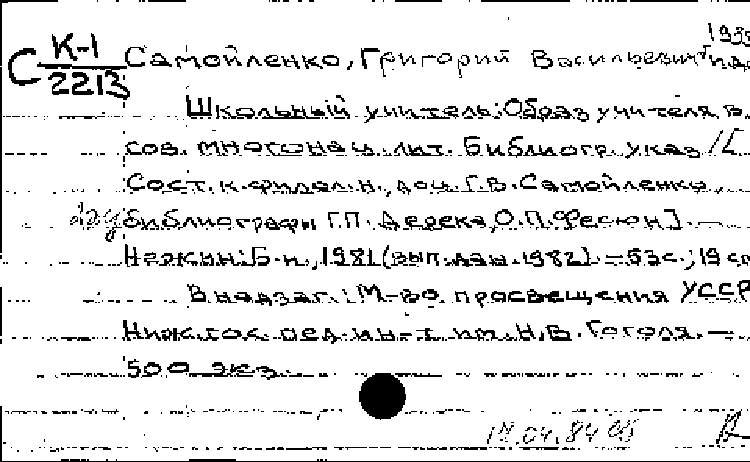 С К-1/2213 Самойленко, Григорий Васильевич
Школьный учитель: Образ учителя в
сов. многонац. лит. Библиогр. указ. / [
Сост. к. филол. н., доц. Г.В. Самойленко,
библиографы Г.П. Дерека, О.П. Фесюн]. —
Нежин: Б. и., 1981 (вып. дан. 1982). — 53 с.; 19 см
В надзаг.: М-во просвещения УССР
Ниж. гос. пед. ин-т им. Н.В. Гоголя. —
500 экз.
04.84